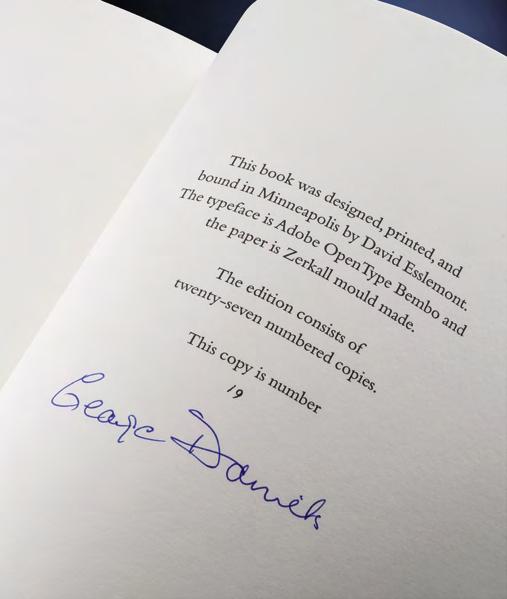 This book was designed, printed, and
bound in Minneapolis by David Esslemont.
The typeface is Adobe OpenType Bembo and
the paper is Zerkall mould made.
The edition consists of
twenty-seven numbered copies.
This copy is number
19
George Daniels